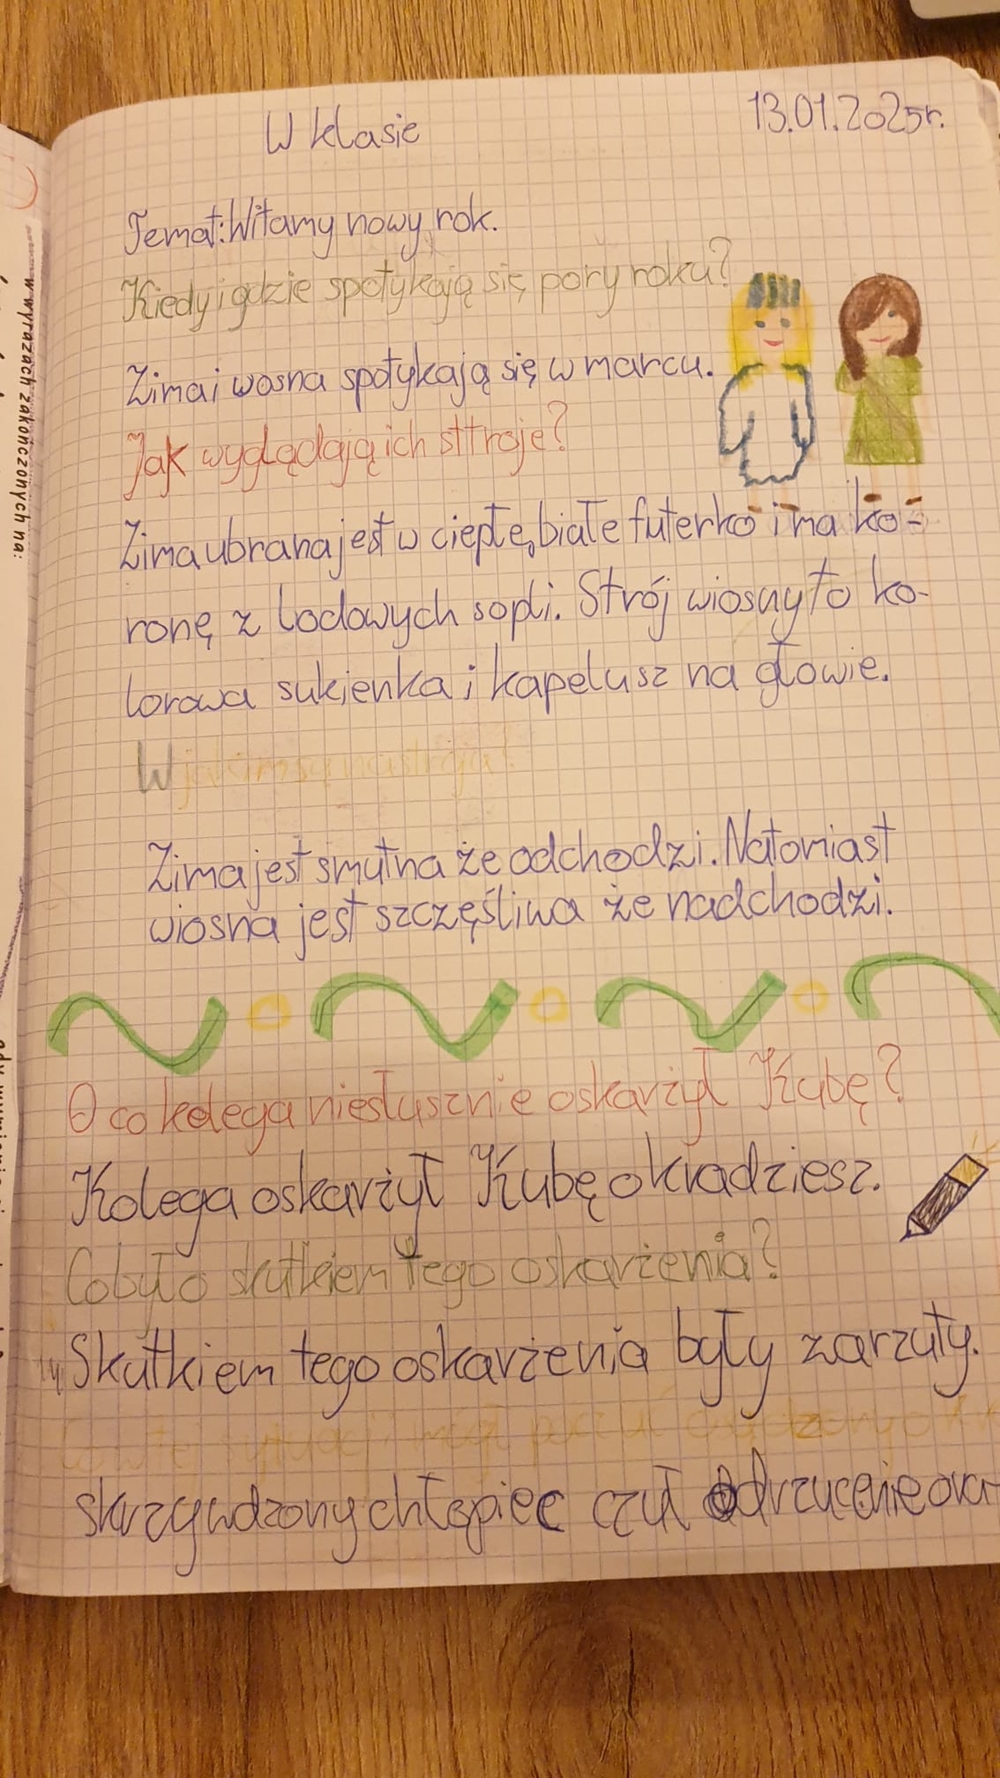 W klasie
13.01.2025r.
Temat: Witamy nowy rok.
Kiedy i gdzie spotykają się pory roku?
Zima i wosna spotykają się w marcu.
Jak wyglądają ich sttroje?
Zima ubrana jest w ciepłe, białe futerko i ma ko-
ronę z lodowych sopli. Strój wiosny to ko-
lorowa sukienka i kapelusz na głowie.
W jakim są nastroju?
Zima jest smutna że odchodzi. Natomiast
wiosna jest szczęśliwa że nadchodzi.
O co kolega niesłusznie oskarżył Kubę?
Kolega oskarżył Kubę o kradziesz.
Co było skutkiem tego oskarżenia?
Skutkiem tego oskarżenia były zarzuty.
skrzywdzony chłopiec czuł odrzucenie
w wyrazach zakończonych na: